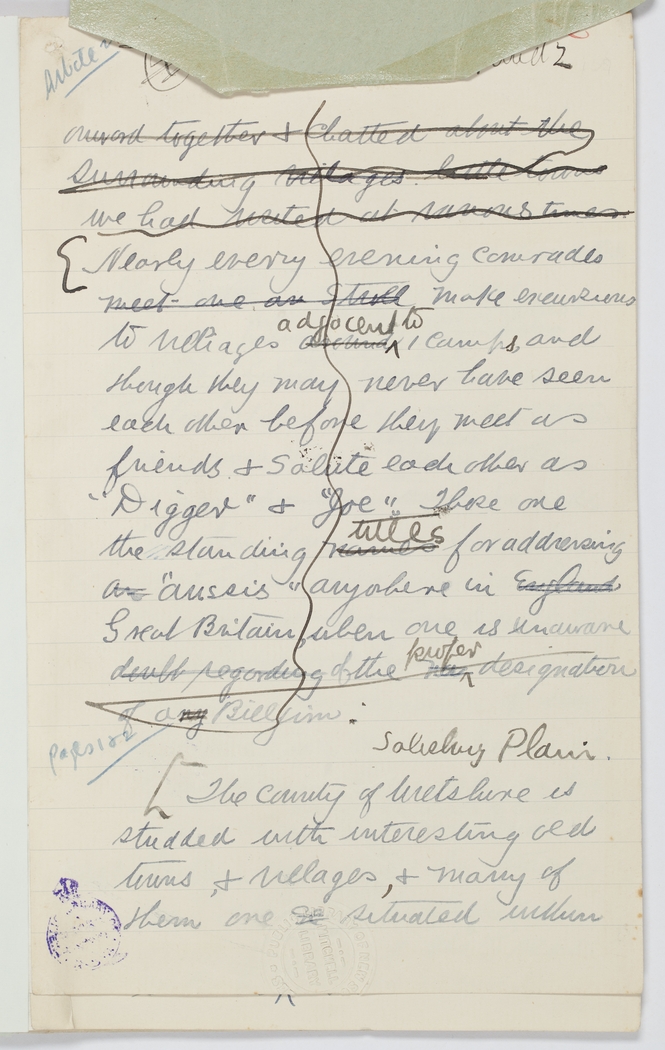 Article
onword together & chatted about the
surrounding villages. little towns
we had visited at various times.
Nearly every evening comrades
meet one an stroll make excursions
adjacent to
to villages around camps, and
though they may never have seen
each other before they meet as
friends & salute each other as
"Digger" & "Joe". These are
titles
the standing names for addressing
an "aussis" anyohere in England
Great Britain, when one is unaware
proper
doubt regarding of the designation
of any Billzim.
Pages 1 & 2
Salisbury Plain.
[ The county of Wiltshire is
studded with interesting old
towns, & villages, & many of
them are situated within